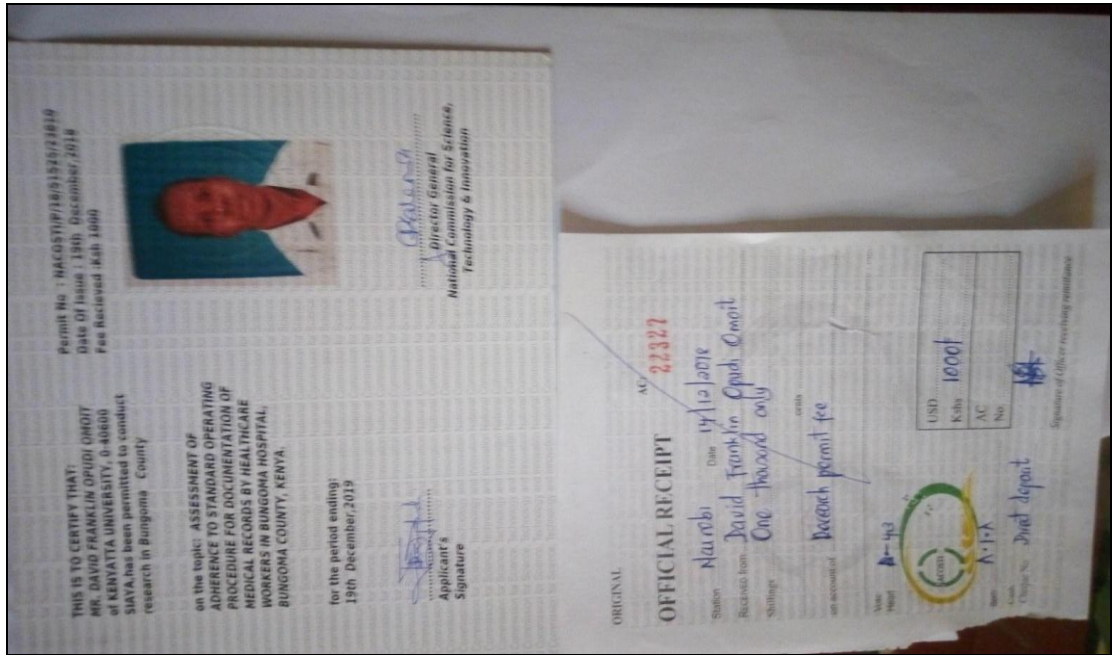 THIS IS TO CERTIFY THAT:
MR. DAVID FRANKLIN OPUDI OMOIT
of KENYATTA UNIVERSITY, 0-40600
SIAYA,has been permitted to conduct
research in Bungoma County
on the topic: ASSESSMENT OF
ADHERENCE TO STANDARD OPERATING
PROCEDURE FOR DOCUMENTATION OF
MEDICAL RECORDS BY HEALTHCARE
WORKERS IN BUNGOMA HOSPITAL,
BUNGOMA COUNTY, KENYA.
for the period ending:
19th December,2019
Applicant's
Signature
Permit No : NACOSTI/P/18/51525/23819
Date Of Issue : 19th December,2018
Fee Recieved :Ksh 1000
Director General
National Commission for Science,
Technology & Innovation
ORIGINAL
OFFICIAL RECEIPT
22327
Station Nairobi Date 14/12/2018
Received from David Franklin Opudi Omoit
Shillings One thousand only
cents
on account of Research permit fee
Vote
Head
A-I-A
Cash
Cheque No
USD
Kshs 1000/
AC
No.
Signature of Officer receiving remittance